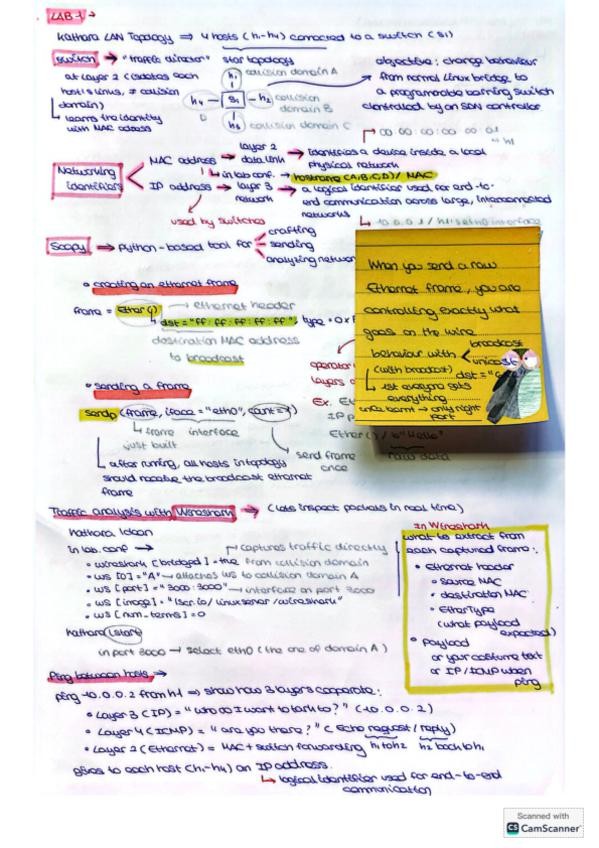 LAB 1
Kathara LAN Topology ⇒ 4 hosts (h1-h4) connected to a switch (s1)
switch → "traffic director" star topology
at layer 2 (isolates each
host's links, ≠ collision
domain)
learns the identity
with MAC adress
h1 collision domain A
h4 — S1 — h2 collision
domain B
D
h3 collision domain C
objective: change behaviour
from normal Linux bridge to
a programable learning switch
controlled by an SDN controller
00:00:00:00:00:01
"h1
Networking
identifiers
MAC address → layer 2
data link → identifies a device inside a local
physical network
in lab.conf. → hostname (A,B,C,D)/ MAC
IP address → layer 3
network → a logical identifier used for end-to-
end communication across large, interconnected
networks
used by switches
10.0.0.1 / h1:eth0 interface
Scapy → Python-based tool for
crafting
sending
analyzing networ
• creating an ethernet frame
frame = Ether () → ethernet header
dst = "ff:ff:ff:ff:ff:ff", type = 0x
destination MAC address
to broadcast
operator
layers
Ex. Et
IP p
Ether()/ b"Hello"
raw data
When you send a raw
Ethernet frame, you are
controlling exactly what
goes on the wire
behaviour with
broadcast
unicast
(with broadcast) dst = "
1st everyone gets
everything
once learnt → only right
port
• sending a frame
sendp (frame, iface = "eth0", count=1)
frame interface
just built
send frame
once
after running, all hosts in topology
should receive the broadcast ethernet
frame
Traffic analysis with Wireshark → (lets inspect packets in real time)
Kathara ldean
in lab.conf →
captures traffic directly
• wireshark [bridged] = true from collision domain
• ws [0] = "A" → attaches ws to collision domain A
• ws [port] = "3000:3000" → interface on port 3000
• ws [image] = "lscr.io/linuxserver/wireshark"
• ws [num-terms] = 0
kathara lstart
in port 3000 → select eth0 (the one of domain A)
in Wireshark
what to extract from
each captured frame:
• Ethernet header
• Source MAC
• destination MAC
• EtherType
(what payload
expected)
• payload
or your custome text
or IP/ICMP when
ping
Ping between hosts →
ping 10.0.0.2 from h1 ⇒ show how 3 layers cooperate:
• Layer 3 (IP) = "who do I want to talk to?" (10.0.0.2)
• Layer 4 (ICMP) = "are you there?" (Echo request / reply)
• Layer 2 (Ethernet) = MAC + switch forwarding h1 to h2 h2 back to h1
gives to each host (h1-h4) an IP address.
logical identifier used for end-to-end
communication
Scanned with
CS CamScanner